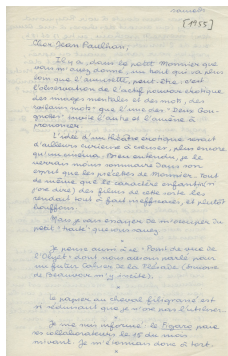 samedi
[1955]
Cher Jean Paulhan,
Il y a, dans le petit Monnier que
vous m'avez donné, un trait qui va plus
loin que l'anecdote, peut-être. C'est
l'observation de l'actif pouvoir érotique
des images mentales et des mots, des
vilains mots que l'une des "Deux Gou-
gnotes" invite l'autre et l'amène à
prononcer.
L'idée d'un théâtre érotique serait
d'ailleurs curieuse à creuser, plus encore
qu'un cinéma. Bien entendu, je le
verrais moins sommaire dans son
esprit que les piécettes de Monnier. Tout
de même que le caractère enfantin (si
j'ose dire) des films de cette sorte les
rendant tout à fait inoffensifs, et plutôt
bouffons.
Mais je vais essayer de m'occuper du
petit "texte" que vous savez.
*
Je pense aussi à ce "Point de vue de
l'Objet" dont nous avions parlé pour
un futur Cahier de la Pléiade (Simone
de Beauvoir m'y incite).
*
Le papier au cheval filigrané est
si séduisant que je n'ose pas l'utiliser.
*
Je me suis informé: le Figaro paie
ses collaborateurs le 15 du mois
suivant. Je m'étonnais donc à tort.